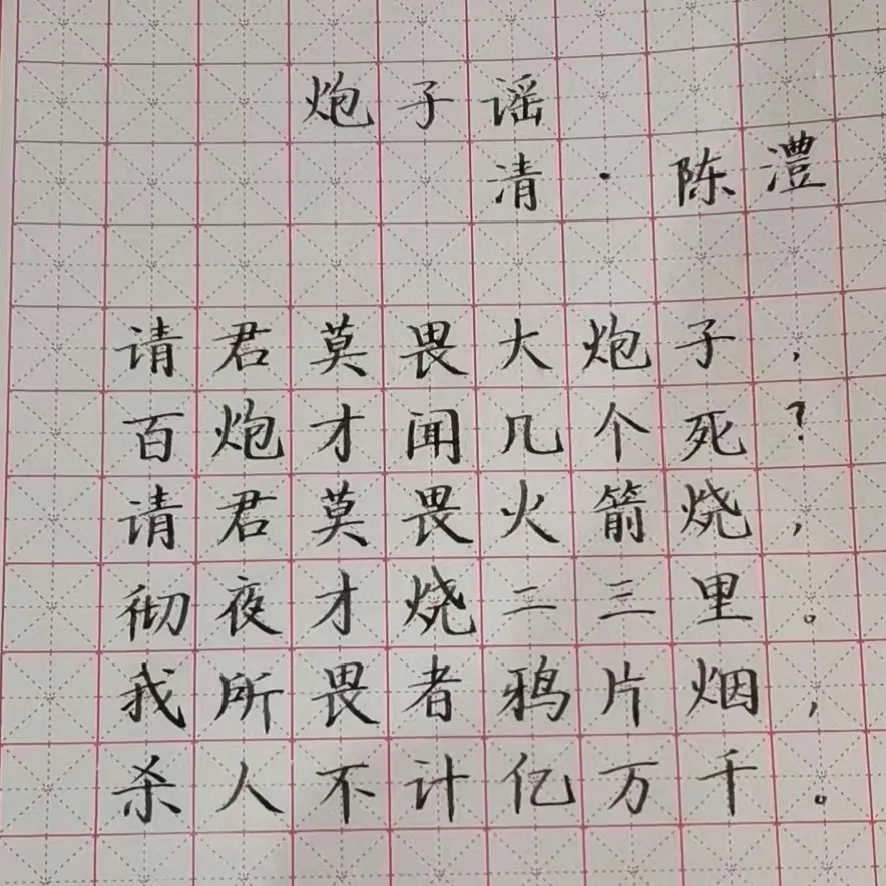 炮子谣
清·陈澧
请君莫畏大炮子，
百炮才闻几个死？
请君莫畏火箭烧，
彻夜才烧二三里。
我所畏者鸦片烟，
杀人不计亿万千。